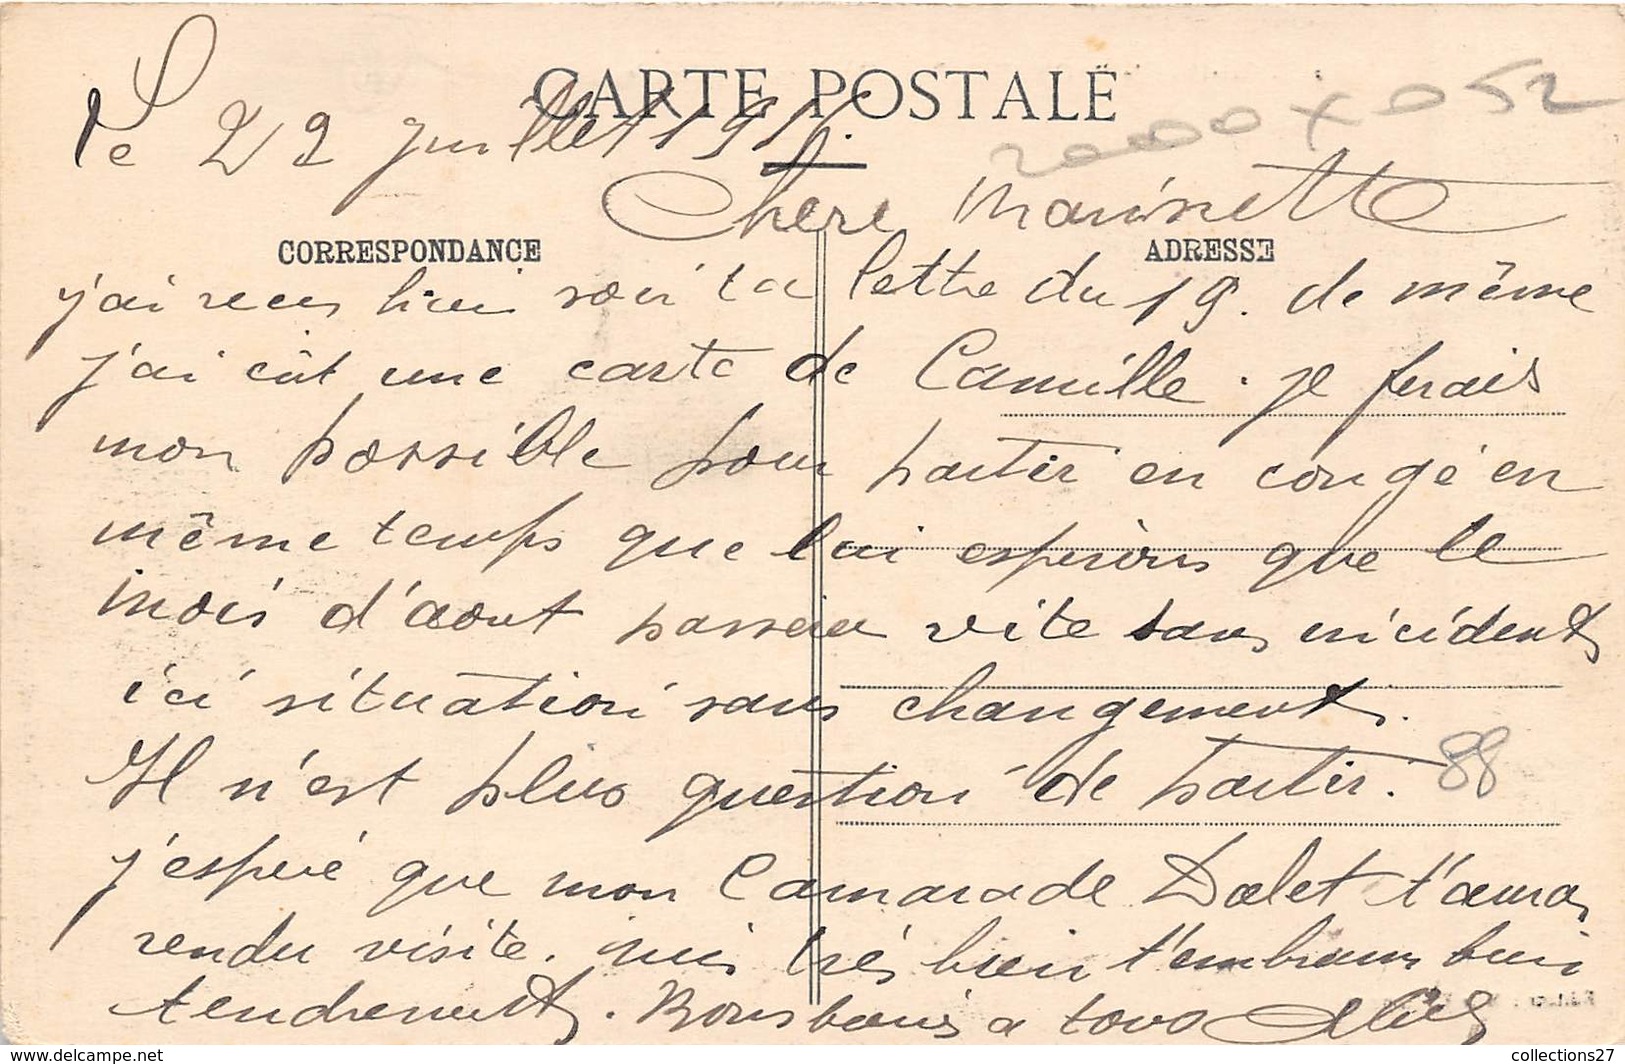 CARTE POSTALE
Le 22 juillet 191
2000 X 052
Chere Marinette
CORRESPONDANCE
ADRESSE
j'ai recu hier soir ta lettre du 19. de même
j'ai eût une carte de Camille. je ferais
mon possible pour partir en congé en
même temps que lui esperons que le
mois d'aout passera vite sans incidents
ici situation sans changement.
Il n'est plus question de partir.
88
j'espere que mon Camarade Dalet t'aura
rendu visite. suis très bien t'embrasse bien
tendrement. Bons baisers a tous
collections27